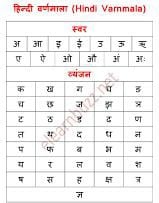 हिन्दी वर्णमाला (Hindi Varnmala)
स्वर
अ आ इ ई उ ऊ ऋ
ए ऐ ओ औ अं अः
व्यंजन
क ख ग घ ङ
च छ ज झ ञ
ट ठ ड ढ ण
त थ द ध न
प फ ब भ म
य र ल व श
ष स ह क्ष त्र
ज्ञ
elearnbuzz.net